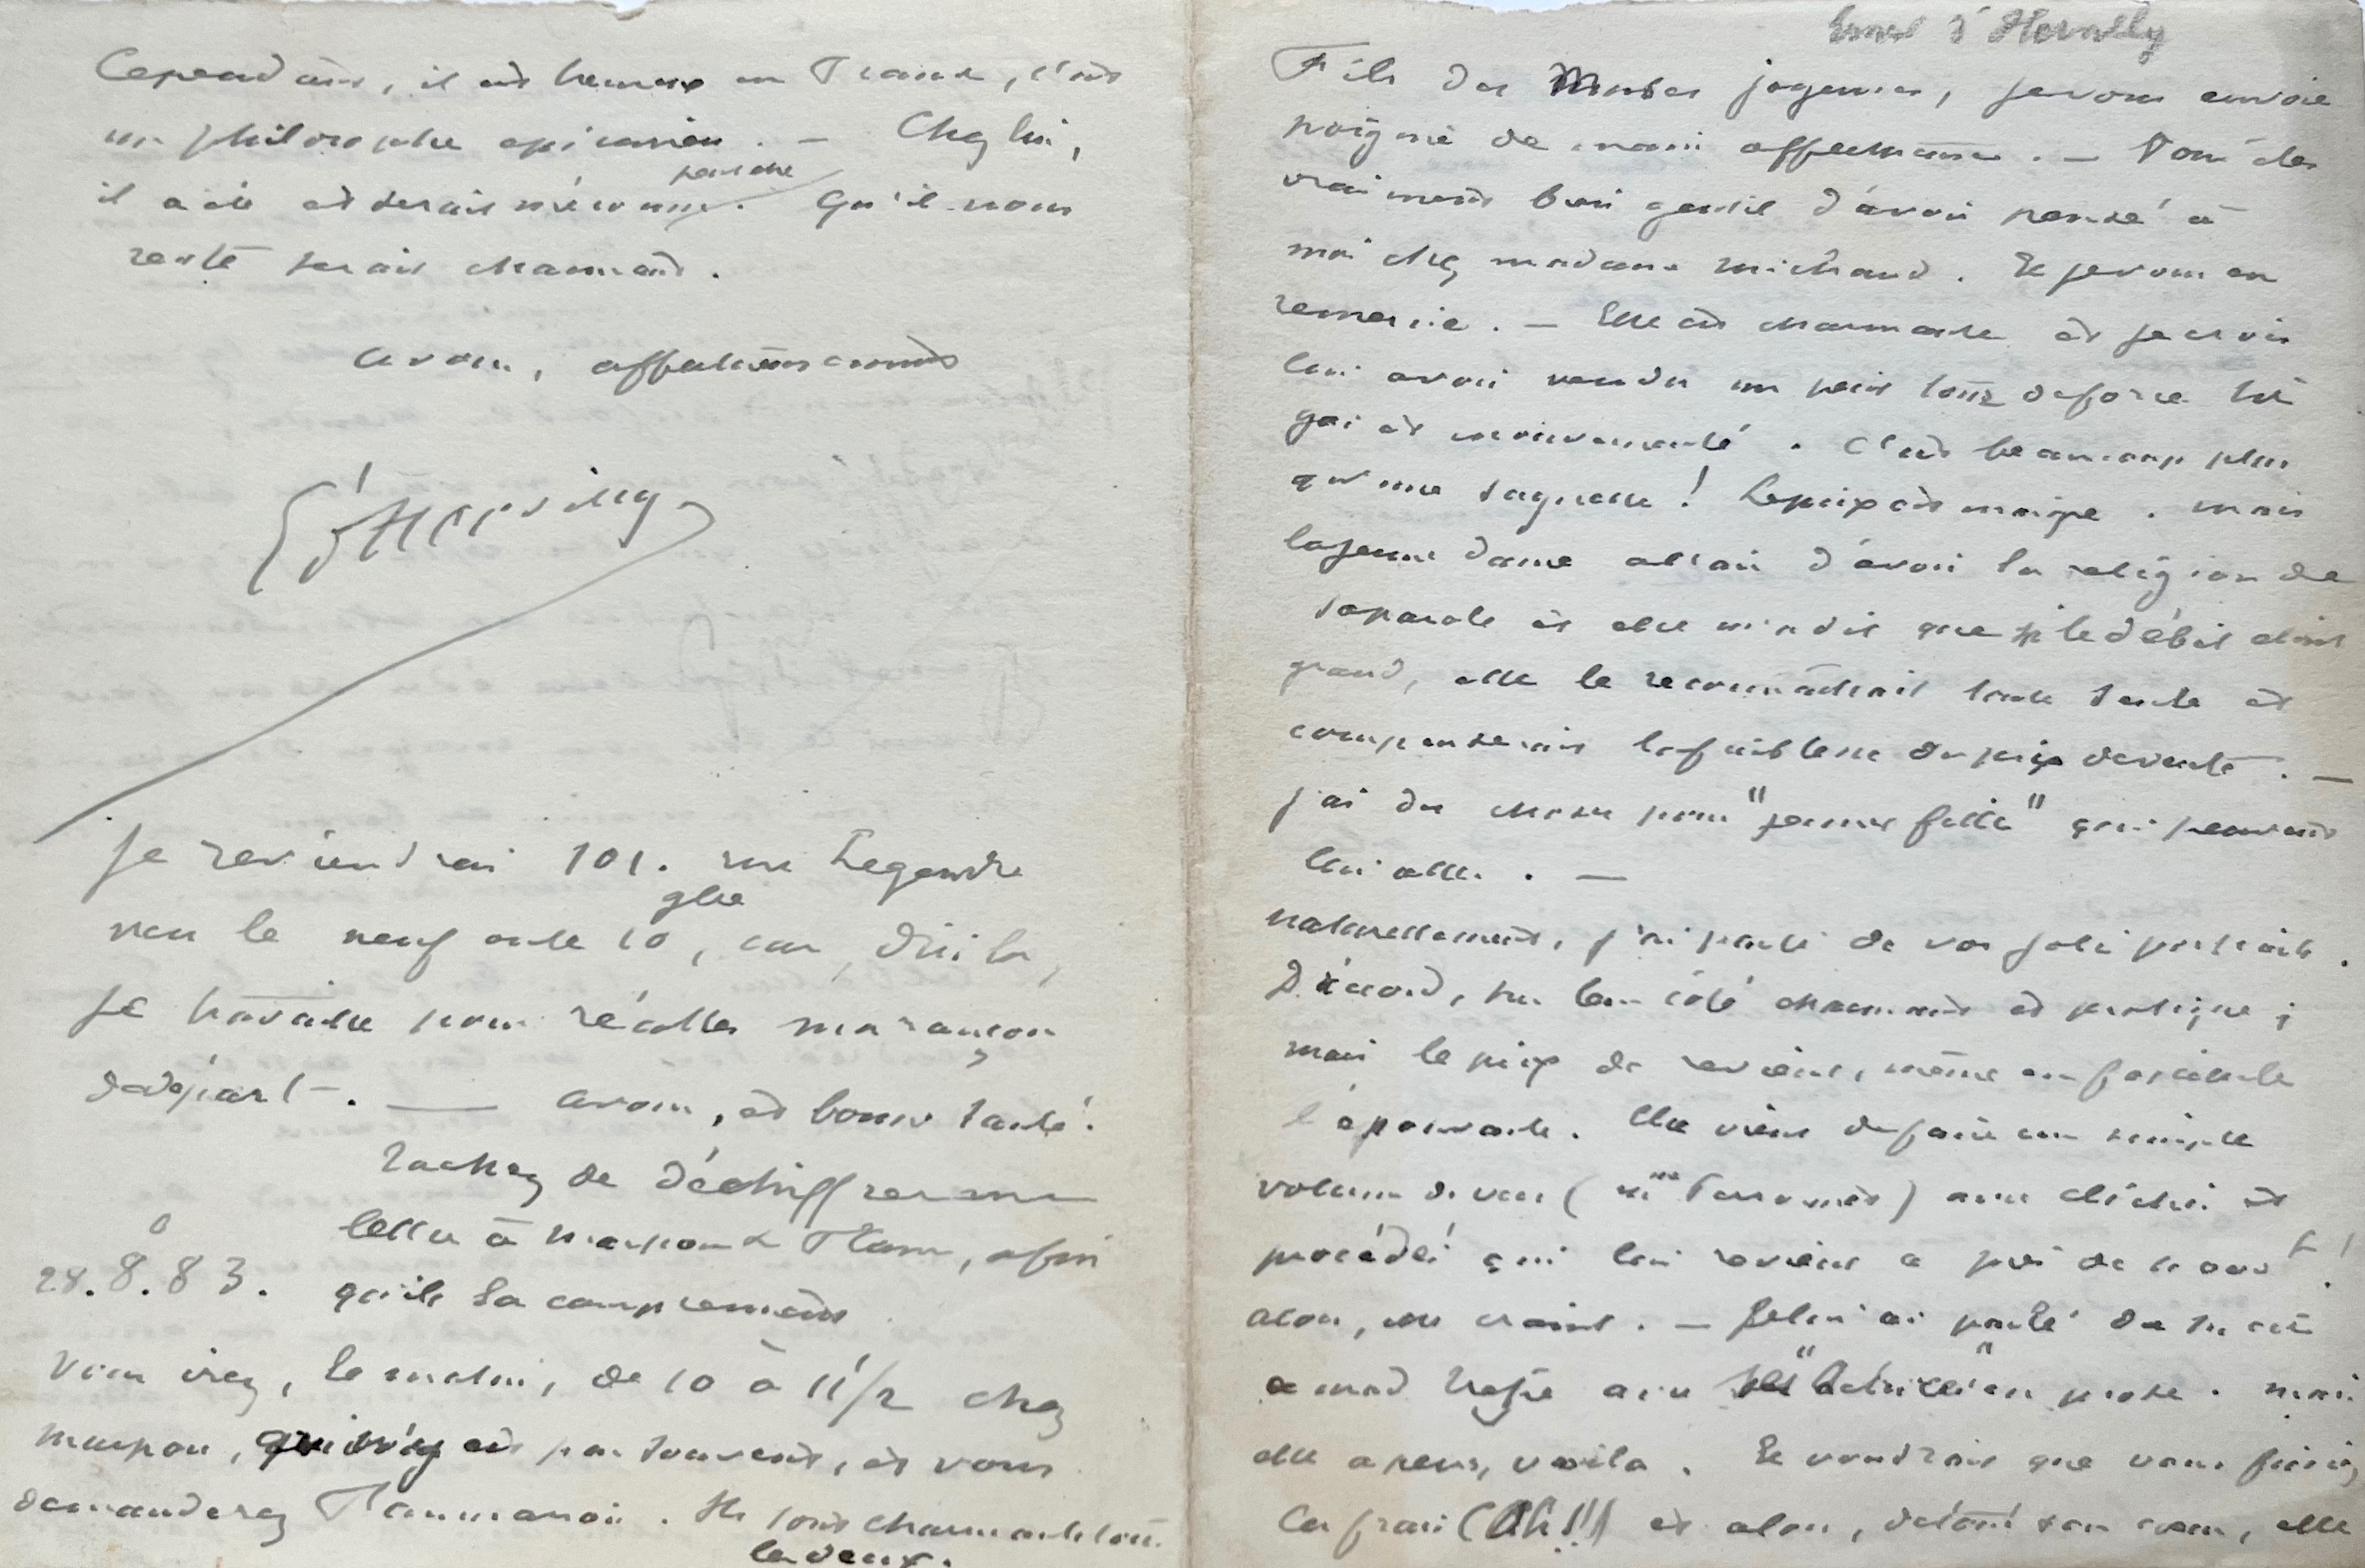 Cependant, il est heureux en France, c'est
un philosophe épicurien. — Chez lui,
il a été et serait méconnu. Qu'il nous
reste serait charmant.
à vous, affectueusement
E d'Hervilly
Je reviendrai 101. rue Legendre
vers le neuf ou le 10, car, dite la,
je travaille pour récolter ma rançon
de départ. — à vous, et bonne santé!
Tachez de déchiffrer ma
lettre à Marpon & Flam, afin
qu'ils la comprennent
28.8.83.
Vous irez, le matin, de 10 à 11 1/2 chez
Marpon, qui n'y est pas souvent, et vous
demanderez Flammarion. Ils sont charmants tous
les deux.
Ernest d'Hervilly
Fils des Muses joyeuses, je vous envoie
poignée de main affectueuse. — Vous êtes
vraiment bien gentil d'avoir pensé à
moi chez madame Michaud. Et je vous en
remercie. — Elle est charmante et je crois
lui avoir vendu un petit tour de force très
gai et mouvementé. C'est beaucoup plus
qu'une saynette! Le prix est maigre. mais
la jeune dame a l'air d'avoir la religion de
sa parole et elle m'a dit que si le débit était
grand, elle le reconnaîtrait toute seule et
compenserait la faiblesse du prix de vente. —
j'ai des choses pour "jeunes filles" qui peuvent
lui aller. —
naturellement, j'ai parlé de vos jolis portraits.
D'accord, sur leur côté charmant et pratique;
mais le prix de revient, même en fascicule
l'épouvante. Elle vient de faire un simple
volume de vers ( ) avec clichés et
procédés qui lui revient à près de
alors, elle craint. — Je lui ai parlé de
avec en prose. mais
elle a peur, voilà. Il voudrait que vous fissiez
les frais (Ah!!!) et alors, de tout son cœur, elle